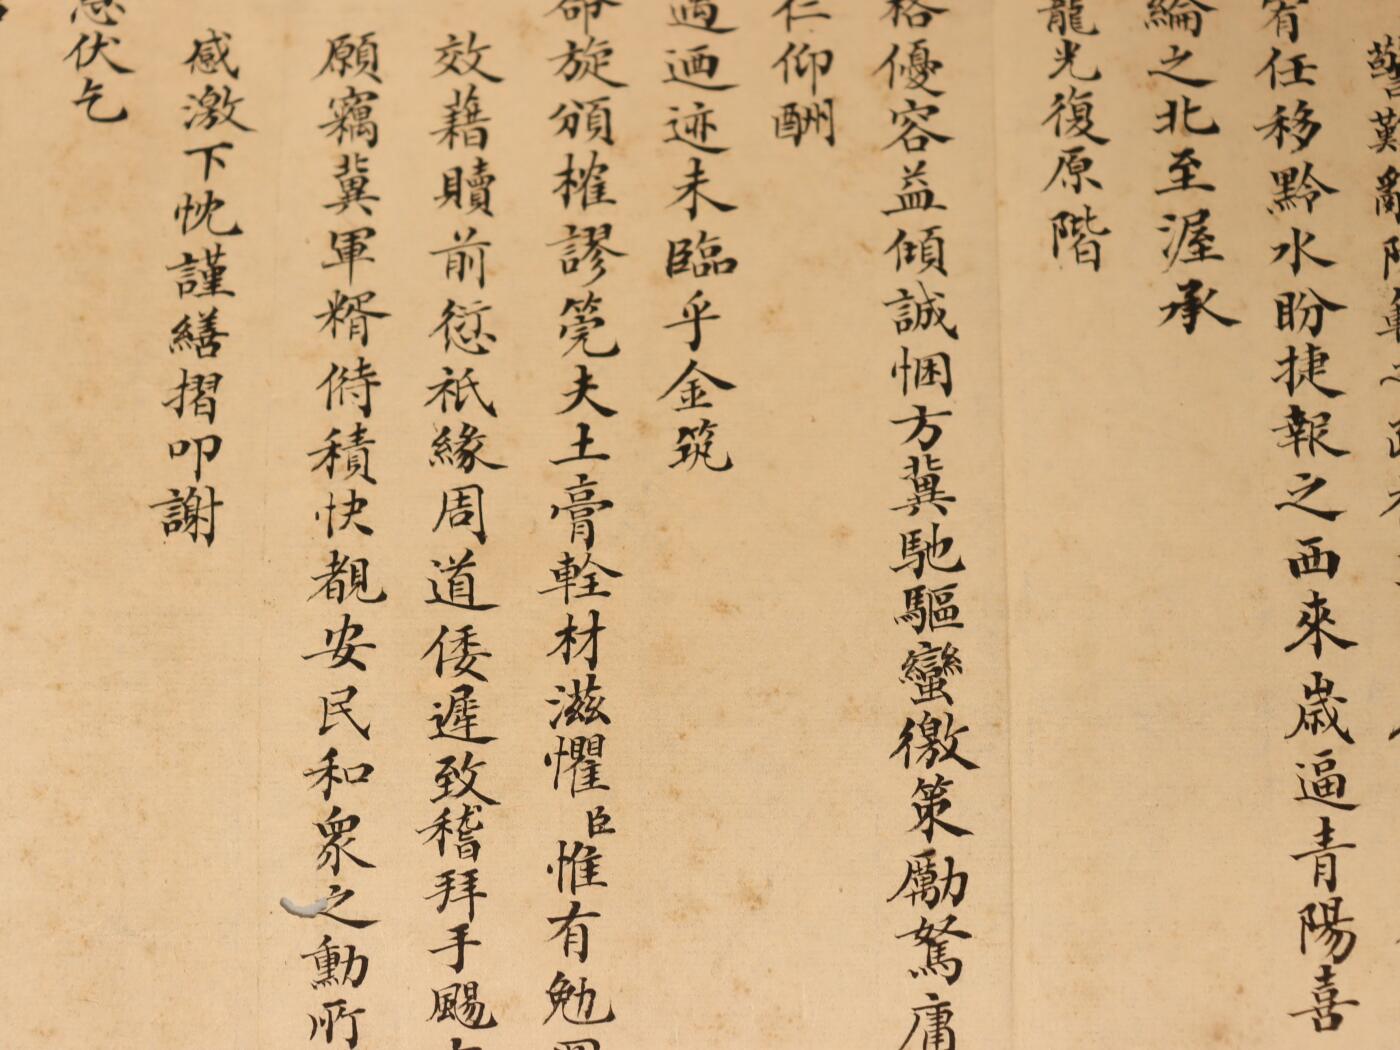 警難辭
有任移黔水盼捷報之西來歲逼青陽喜
綸之北至渥承
龍光復原階
格優容益傾誠悃方冀馳驅蠻徼策勵駑庸
仁仰酬
過迺迹未臨乎金筑
命旋頒榷謬筦夫土膏輇材滋懼臣惟有勉
效藉贖前愆祇緣周道倭遲致稽拜手颺
願竊冀軍糈偫積快覩安民和衆之勳所
感激下忱謹繕摺叩謝
伏乞